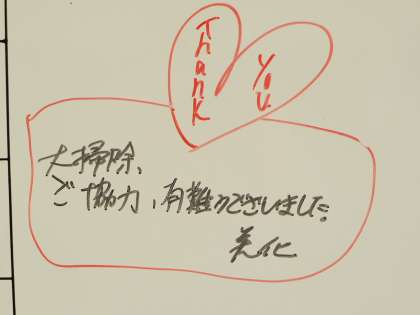 Thank
you
大掃除、
ご協力、有難うございました。
美化